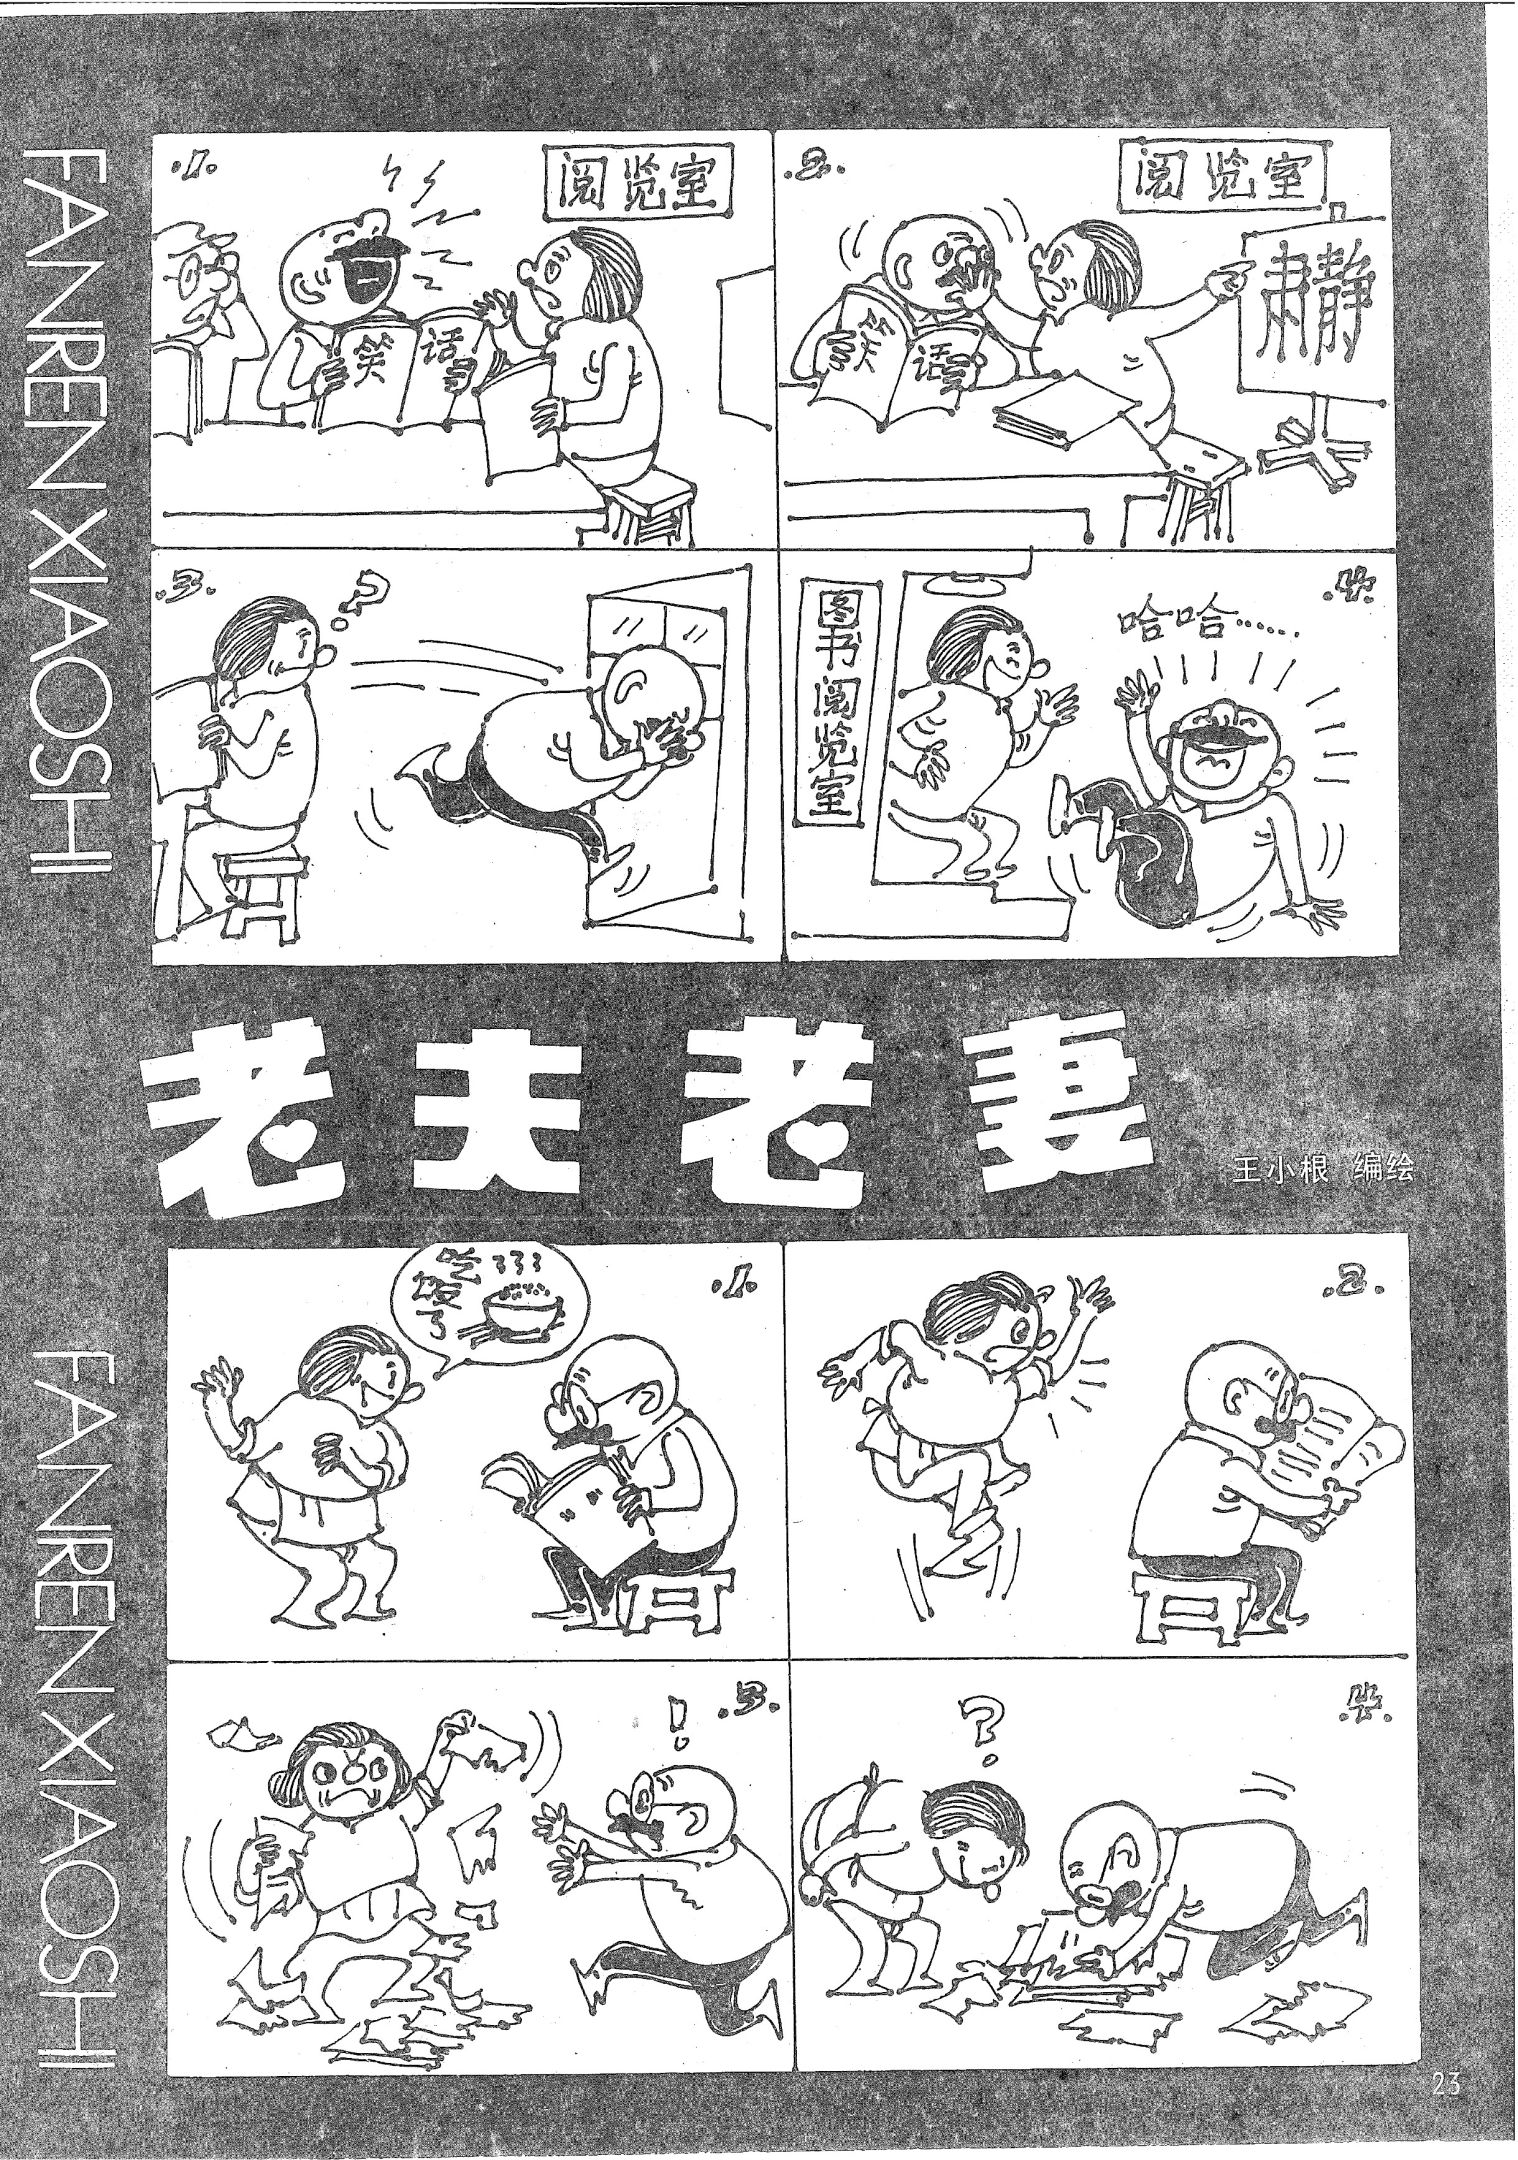 FANREN XIAOSHI
1
阅览室
笑话
2
阅览室
肃静
笑话
3
?
4
图书阅览室
哈哈……
老夫老妻
王小根 编绘
FANREN XIAOSHI
1
吃饭了
2
3
!
4
?
23